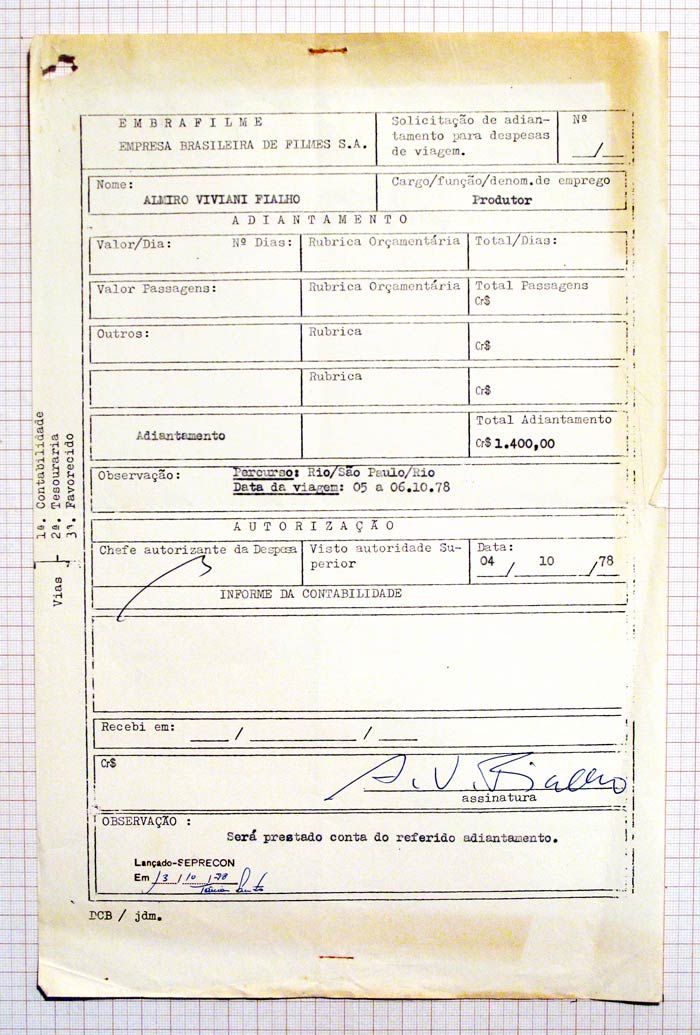 EMBRAFILME
EMPRESA BRASILEIRA DE FILMES S.A.
Solicitação de adian-
tamento para despesas
de viagem.
Nº
__/__
Nome:
ALMIRO VIVIANI FIALHO
Cargo/função/denom.de emprego
Produtor
ADIANTAMENTO
Valor/Dia: Nº Dias: Rubrica Orçamentária Total/Dias:
Valor Passagens: Rubrica Orçamentária Total Passagens
Cr$
Outros: Rubrica
Cr$
Rubrica
Cr$
Adiantamento
Total Adiantamento
Cr$ 1.400,00
Observação: Percurso: Rio/São Paulo/Rio
Data da viagem: 05 a 06.10.78
AUTORIZAÇÃO
Chefe autorizante da Despesa
Visto autoridade Su-
perior
Data:
04 / 10 /78
INFORME DA CONTABILIDADE
Recebi em: ___ / ________ / ___
Cr$
A. V. Fialho
assinatura
OBSERVAÇÃO :
Será prestado conta do referido adiantamento.
Lançado-SEPRECON
Em 13/10/78
DCB / jdm.
Vias
1ª. Contabilidade
2ª. Tesouraria
3ª. Favorecido